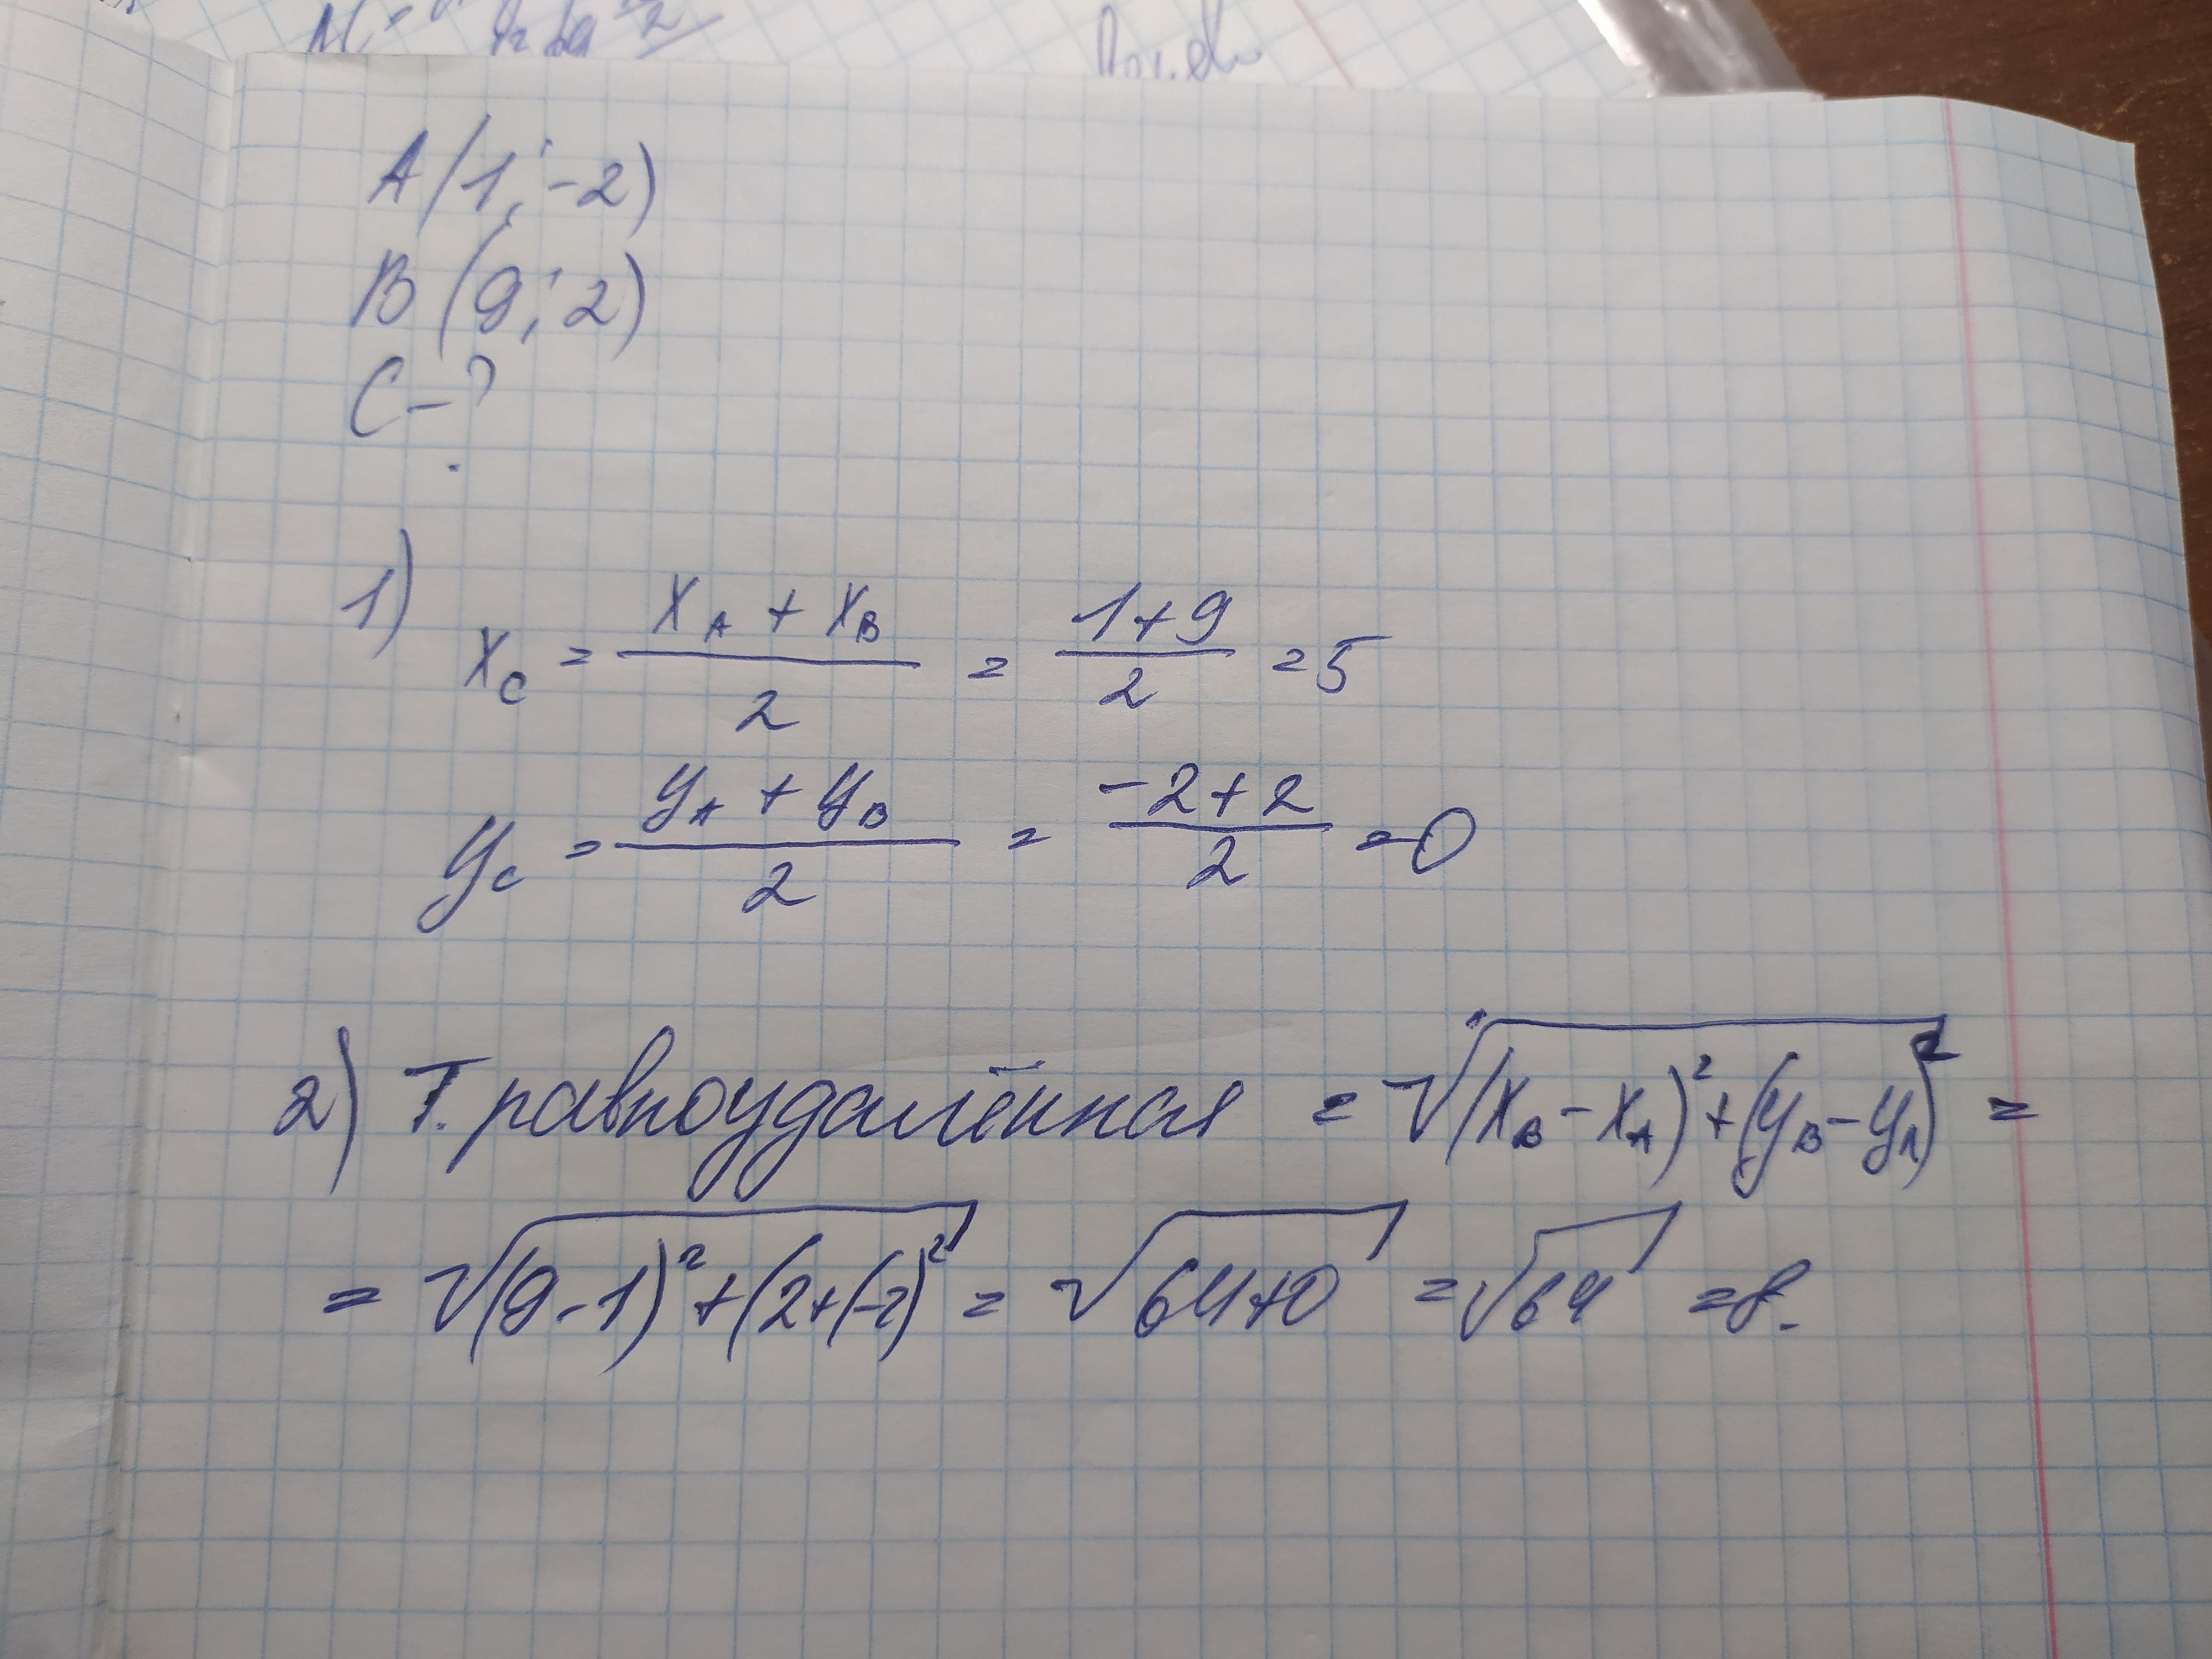 A(1; -2)
B(9; 2)
C-?
1) x_C = (x_A + x_B)/2 = (1+9)/2 = 5
y_C = (y_A + y_B)/2 = (-2+2)/2 = 0
2) Т. равноудалённая = √((x_B - x_A)² + (y_B - y_A)²) =
= √((9-1)² + (2+(-2)²) = √(64+0) = √64 = 8.